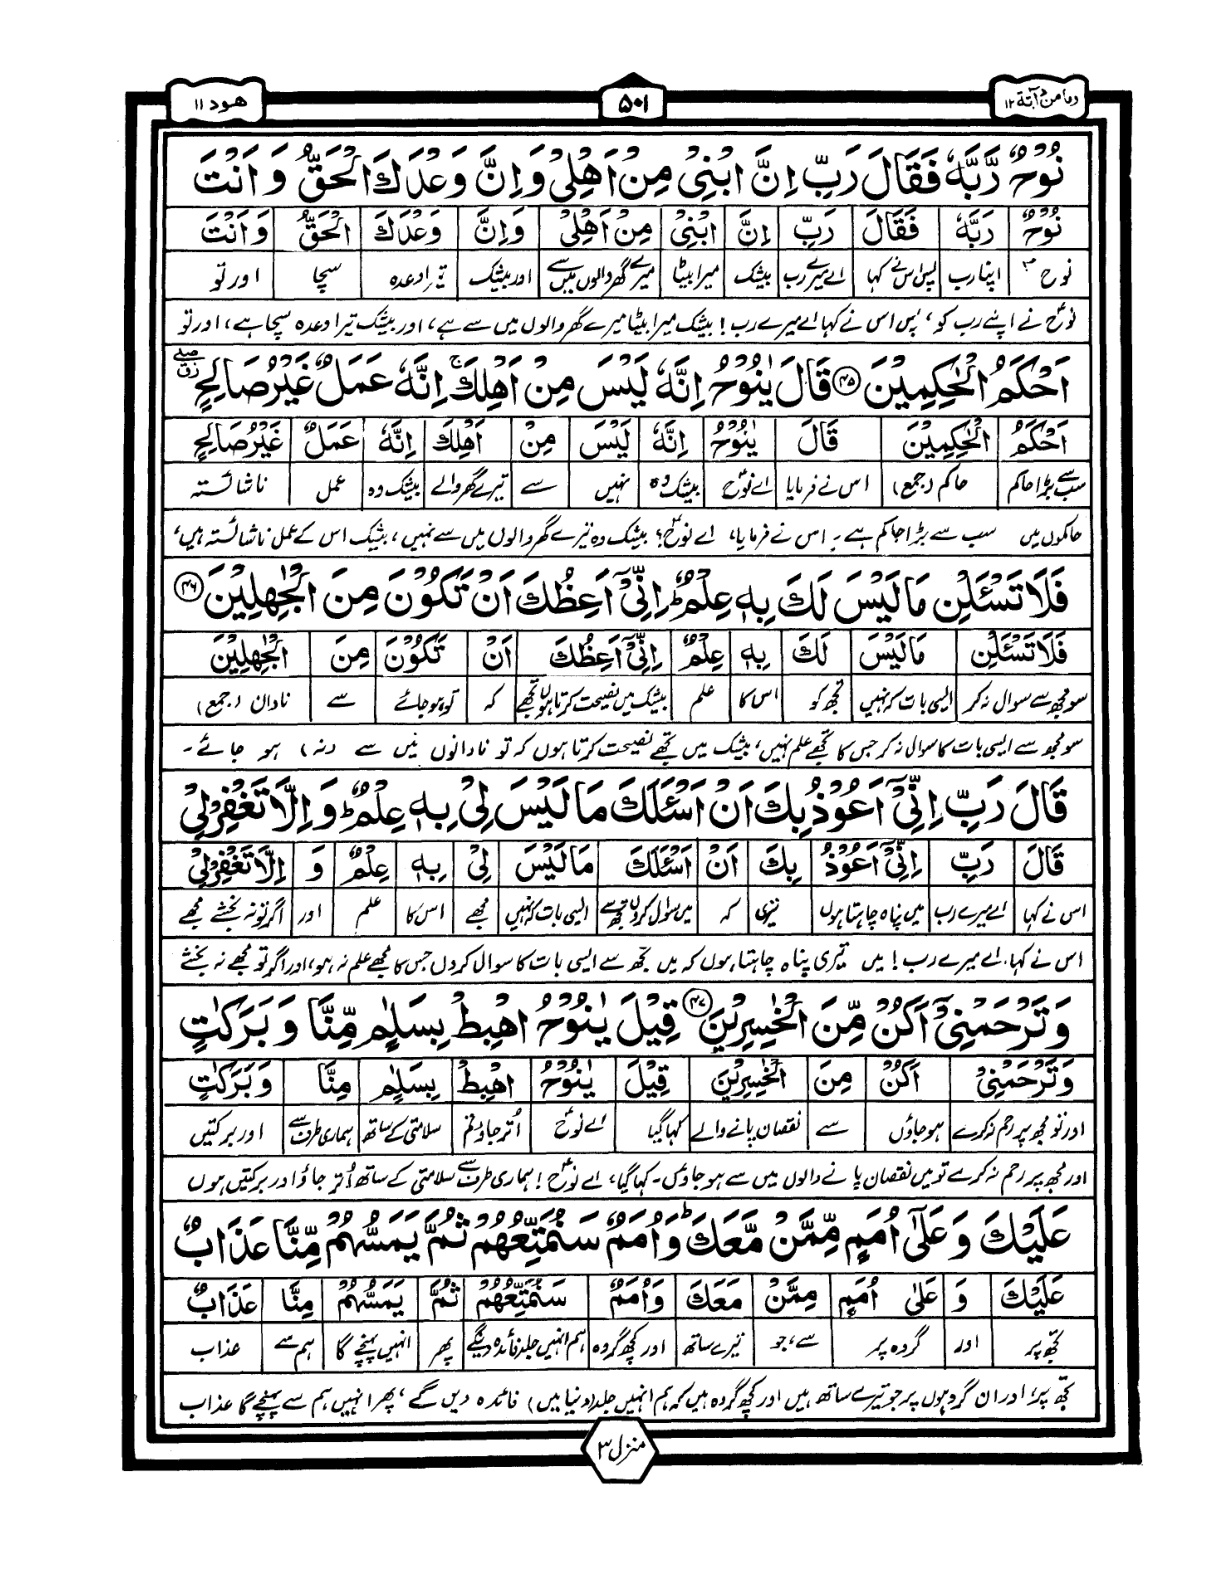 ومامن دآبة ١٢
٥٠١
هود ١١
نُوْحٌ رَّبَّهٗ فَقَالَ رَبِّ اِنَّ ابْنِیْ مِنْ اَهْلِیْ وَ اِنَّ وَعْدَكَ الْحَقُّ وَ اَنْتَ
نُوْحٌ رَبَّهٗ فَقَالَ رَبِّ اِنَّ ابْنِیْ مِنْ اَهْلِیْ وَاِنَّ وَعْدَكَ الْحَقُّ وَ اَنْتَ
نوحؑ اپنا رب پس اس نے کہا اے میرے رب بیشک میرا بیٹا میرے گھر والوں میں سے اور بیشک تیرا وعدہ سچا اور تو
نوحؑ نے اپنے رب کو، پس اس نے کہا اے میرے رب! بیشک میرا بیٹا میرے گھر والوں میں سے ہے، اور بیشک تیرا وعدہ سچا ہے، اور تو
اَحْكَمُ الْحٰكِمِیْنَ ﴿۴۵﴾ قَالَ یٰنُوْحُ اِنَّهٗ لَیْسَ مِنْ اَهْلِكَ ۚ اِنَّهٗ عَمَلٌ غَیْرُ صَالِحٍ
اَحْكَمُ الْحٰكِمِیْنَ قَالَ یٰنُوْحُ اِنَّهٗ لَیْسَ مِنْ اَهْلِكَ اِنَّهٗ عَمَلٌ غَیْرُ صَالِحٍ
سب سے بڑا حاکم حاکم (جمع) اس نے فرمایا اے نوحؑ بیشک وہ نہیں سے تیرے گھر والے بیشک وہ عمل ناشائستہ
حاکموں میں سب سے بڑا حاکم ہے۔ اس نے فرمایا، اے نوحؑ! بیشک وہ تیرے گھر والوں میں سے نہیں، بیشک اس کے عمل ناشائستہ ہیں،
فَلَا تَسْـَٔلْنِ مَا لَیْسَ لَكَ بِهٖ عِلْمٌ ؕ اِنِّیْۤ اَعِظُكَ اَنْ تَكُوْنَ مِنَ الْجٰهِلِیْنَ ﴿۴۶﴾
فَلَا تَسْـَٔلْنِ مَا لَیْسَ لَكَ بِهٖ عِلْمٌ اِنِّیْۤ اَعِظُكَ اَنْ تَكُوْنَ مِنَ الْجٰهِلِیْنَ
سو مجھ سے سوال نہ کر ایسی بات کہ نہیں تجھ کو اس کا علم بیشک میں نصیحت کرتا ہوں تجھے کہ تو ہو جائے سے نادان (جمع)
سو مجھ سے ایسی بات کا سوال نہ کر جس کا تجھے علم نہیں، بیشک میں تجھے نصیحت کرتا ہوں کہ تو نادانوں میں سے (نہ) ہو جائے۔
قَالَ رَبِّ اِنِّیْۤ اَعُوْذُ بِكَ اَنْ اَسْـَٔلَكَ مَا لَیْسَ لِیْ بِهٖ عِلْمٌ ؕ وَ اِلَّا تَغْفِرْ لِیْ
قَالَ رَبِّ اِنِّیْۤ اَعُوْذُ بِكَ اَنْ اَسْـَٔلَكَ مَا لَیْسَ لِیْ بِهٖ عِلْمٌ وَ اِلَّا تَغْفِرْ لِیْ
اس نے کہا اے میرے رب میں پناہ چاہتا ہوں تیری کہ میں سوال کروں تجھ سے ایسی بات کہ نہیں مجھے اس کا علم اور اگر تو نہ بخشے مجھے
اس نے کہا، اے میرے رب! میں تیری پناہ چاہتا ہوں کہ میں تجھ سے ایسی بات کا سوال کروں جس کا مجھے علم نہ ہو، اور اگر تو مجھے نہ بخشے
وَ تَرْحَمْنِیْۤ اَكُنْ مِّنَ الْخٰسِرِیْنَ ﴿۴۷﴾ قِیْلَ یٰنُوْحُ اهْبِطْ بِسَلٰمٍ مِّنَّا وَ بَرَكٰتٍ
وَتَرْحَمْنِیْۤ اَكُنْ مِنَ الْخٰسِرِیْنَ قِیْلَ یٰنُوْحُ اهْبِطْ بِسَلٰمٍ مِنَّا وَ بَرَكٰتٍ
اور تو مجھ پر رحم نہ کرے ہو جاؤں سے نقصان پانے والے کہا گیا اے نوحؑ اتر جاؤ تم سلامتی کے ساتھ ہماری طرف سے اور برکتیں
اور مجھ پر رحم نہ کرے تو میں نقصان پانے والوں میں سے ہو جاؤں۔ کہا گیا، اے نوحؑ! ہماری طرف سے سلامتی کے ساتھ اُتر جاؤ اور برکتیں ہوں
عَلَیْكَ وَ عَلٰۤی اُمَمٍ مِّمَّنْ مَّعَكَ ؕ وَ اُمَمٌ سَنُمَتِّعُهُمْ ثُمَّ یَمَسُّهُمْ مِّنَّا عَذَابٌ
عَلَیْكَ وَ عَلٰی اُمَمٍ مِمَّنْ مَعَكَ وَاُمَمٌ سَنُمَتِّعُهُمْ ثُمَّ یَمَسُّهُمْ مِنَّا عَذَابٌ
تجھ پر اور گروہ پر سے، جو تیرے ساتھ اور کچھ گروہ ہم انہیں جلد فائدہ دینگے پھر انہیں پہنچے گا ہم سے عذاب
تجھ پر، اور ان گروہوں پر جو تیرے ساتھ ہیں اور کچھ گروہ ہیں کہ ہم انہیں جلد (دنیا میں) فائدہ دیں گے، پھر انہیں ہم سے پہنچے گا عذاب
منزل ٣